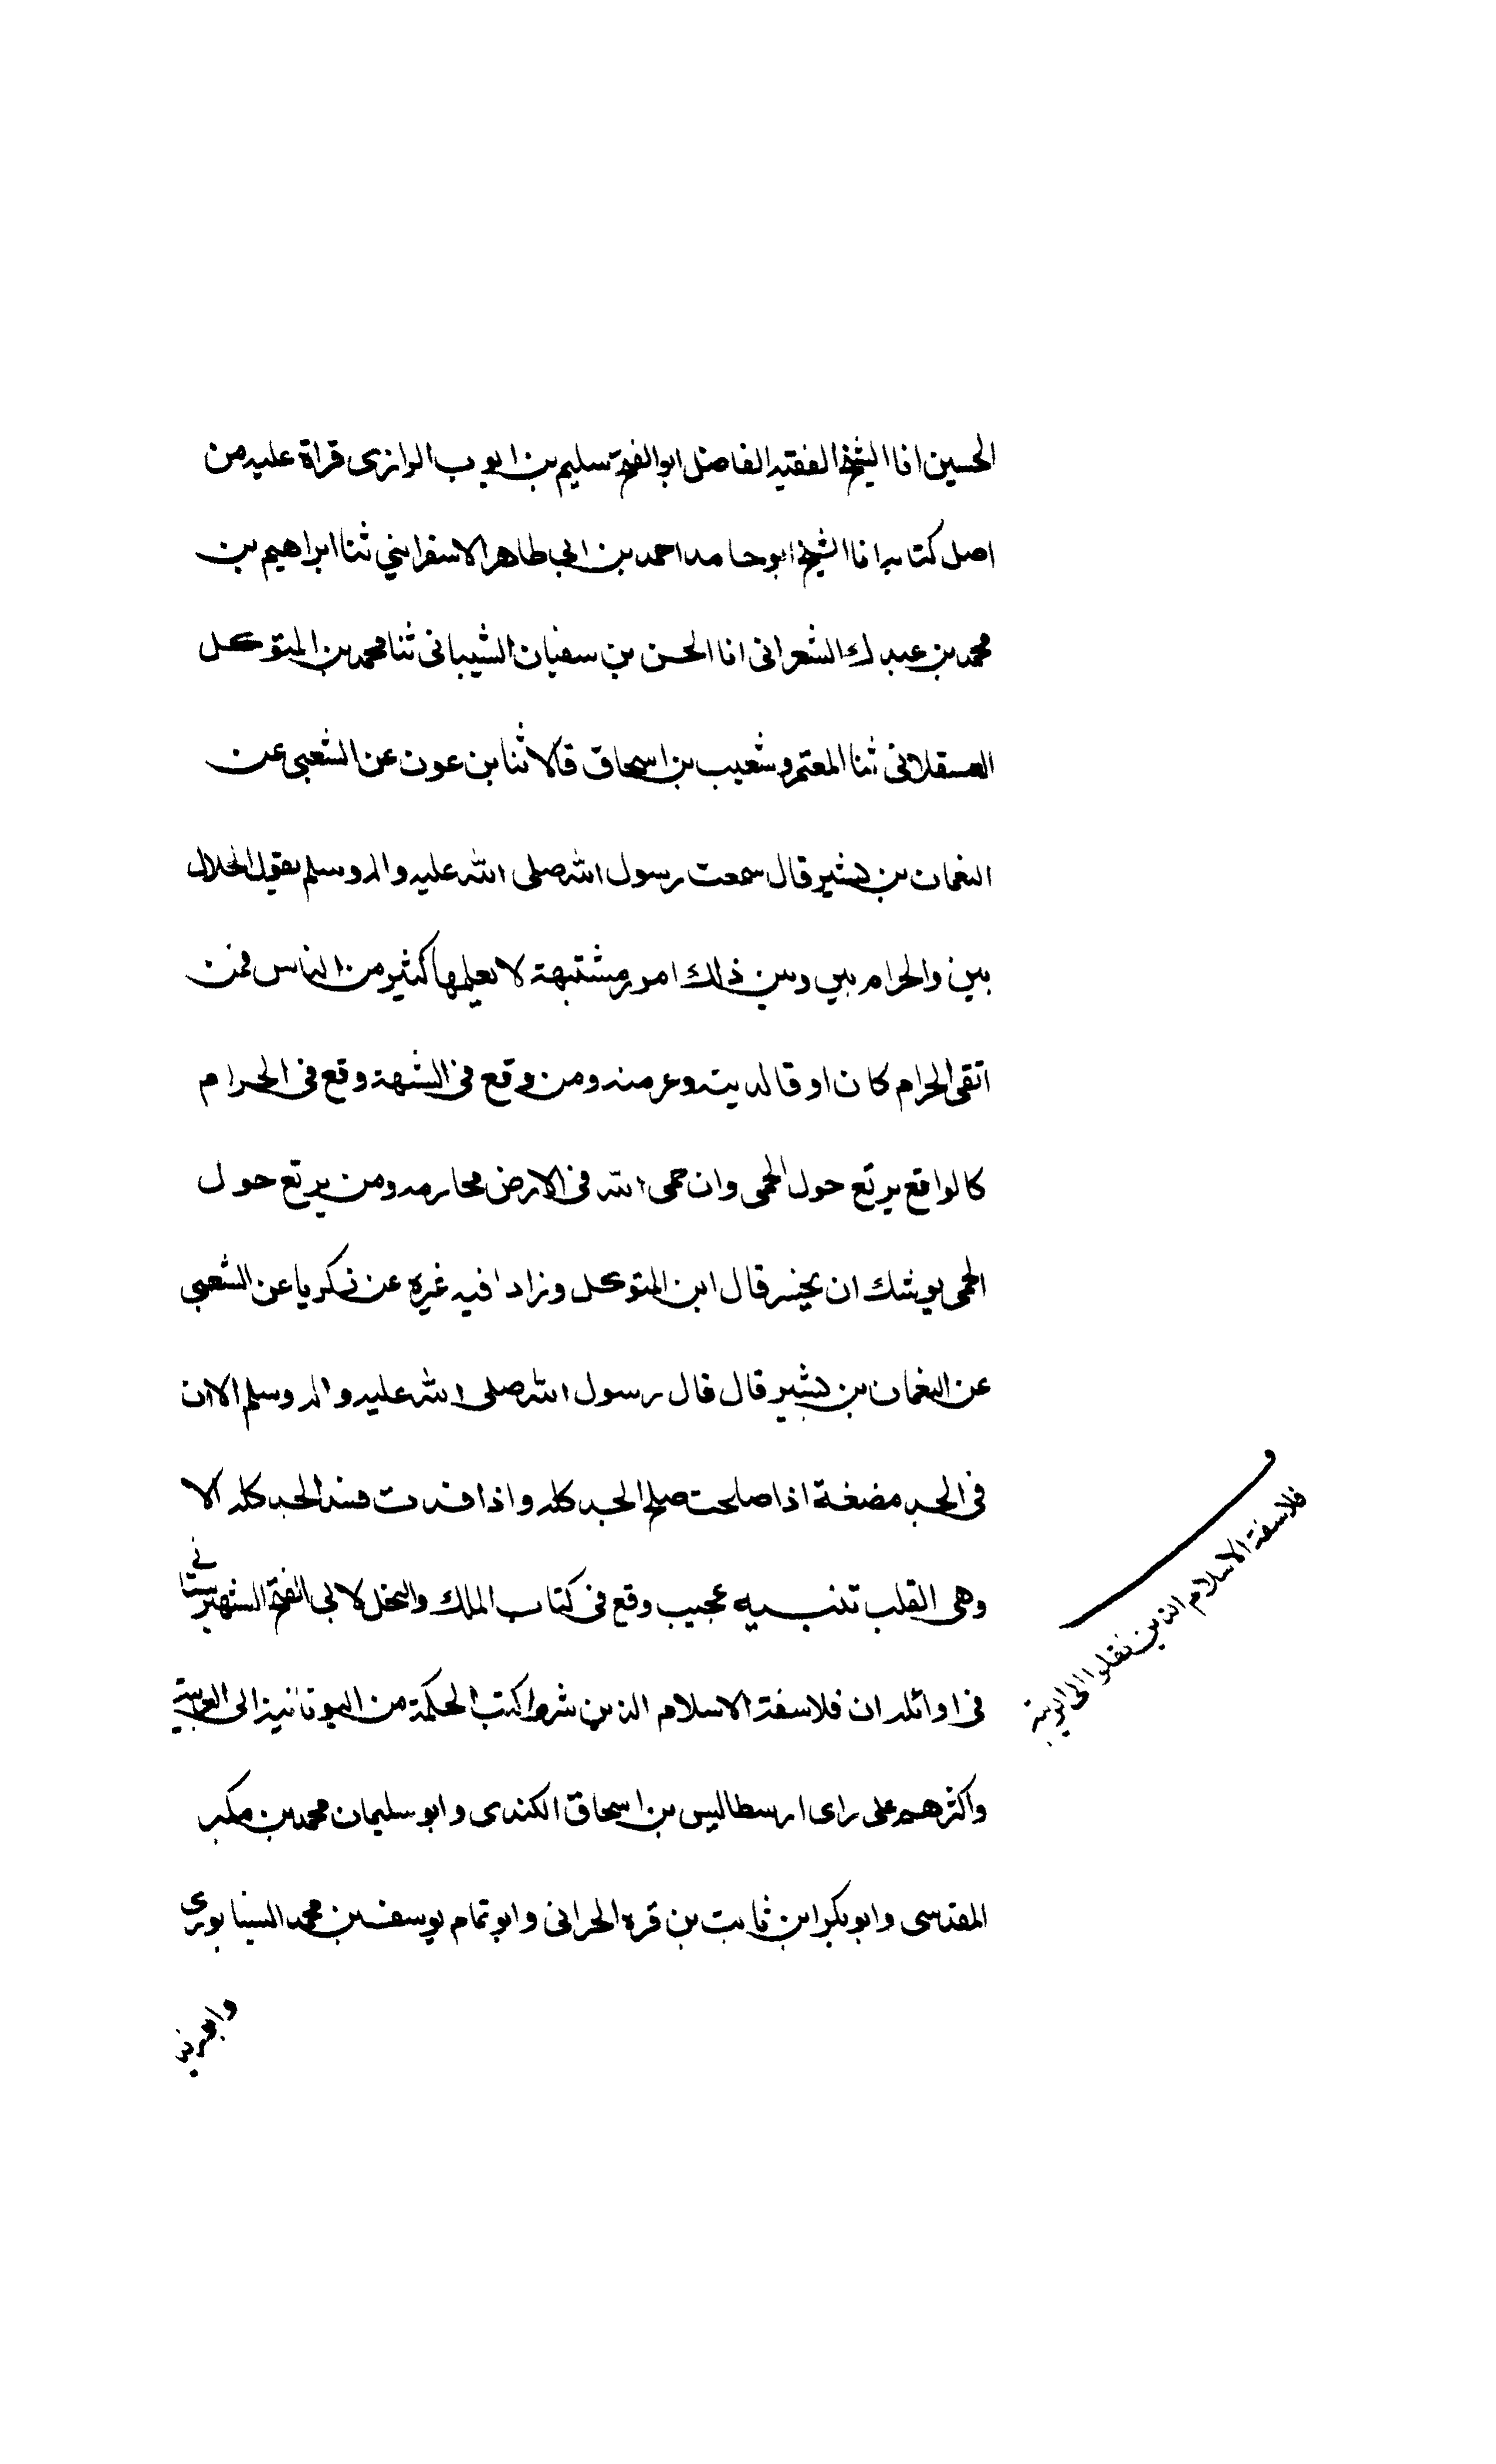 الحسين انا الشيخ الفقيه الفاضل ابو الفتح سليم بن ايوب الرازى قراة عليه من
اصل كتابه انا الشيخ ابو حامد احمد بن ابي طاهر الاسفرايني ثنا ابراهيم بن
محمد بن عبدك الشعرانى انا الحسن بن سفيان الشيبانى ثنا محمد بن المتوكل
العسقلانى ثنا المعتمر وشعيب بن اسحاق قالا ثنا بن عون عن الشعبى عن
النعمان بن بشير قال سمعت رسول الله صلى الله عليه واله وسلم يقول الحلال
بين والحرام بين وبين ذلك امور مشتبهة لا يعلمها كثير من الناس فمن
اتقى الحرام كان اوقا لدينه وعرضه ومن وقع فى الشبهة وقع فى الحرام
كالواقع يرتع حول الحمى وان حمى الله فى الارض محارمه ومن يرتع حول
الحمى يوشك ان يخسر قال ابن المتوكل وزادا فيه غيره عن زكريا عن الشعبى
عن النعمان بن بشير قال قال رسول الله صلى الله عليه واله وسلم الا ان
فى الجسد مضغة اذا صلحت صلح الجسد كله واذا فسدت فسد الجسد كله الا
وهى القلب تنبيه عجيب وقع فى كتاب الملك والنحل لابى الفتح الشهرستانى
فى اوائله ان فلاسفة الاسلام الذين شرط كتب الحكمة من اليونانية الى العربية
واكثرهم على راى ارسطاليس بن اسحاق الكندى وابو سليمان محمد بن مكبر
المقدسى وابو بكر ابن ثابت بن قره الحرانى وابو تمام يوسف بن محمد النيسابورى
فلاسفة الاسلام الذين نقلوا الى العربية